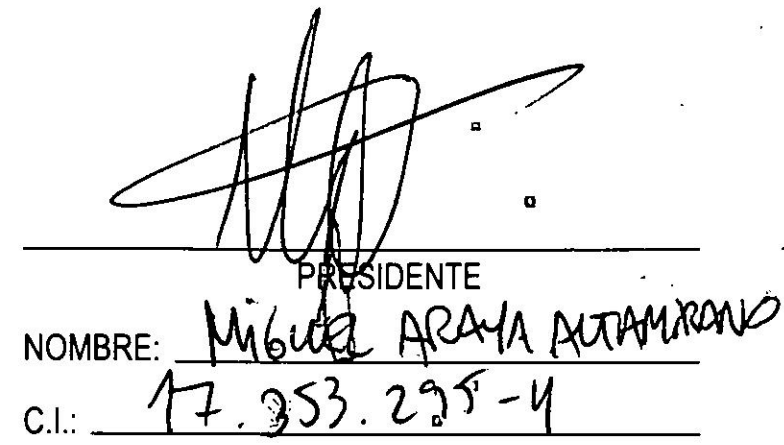 PRESIDENTE
NOMBRE: Miguel ARAYA ALTAMIRANO
C.I.: 17.353.295-4